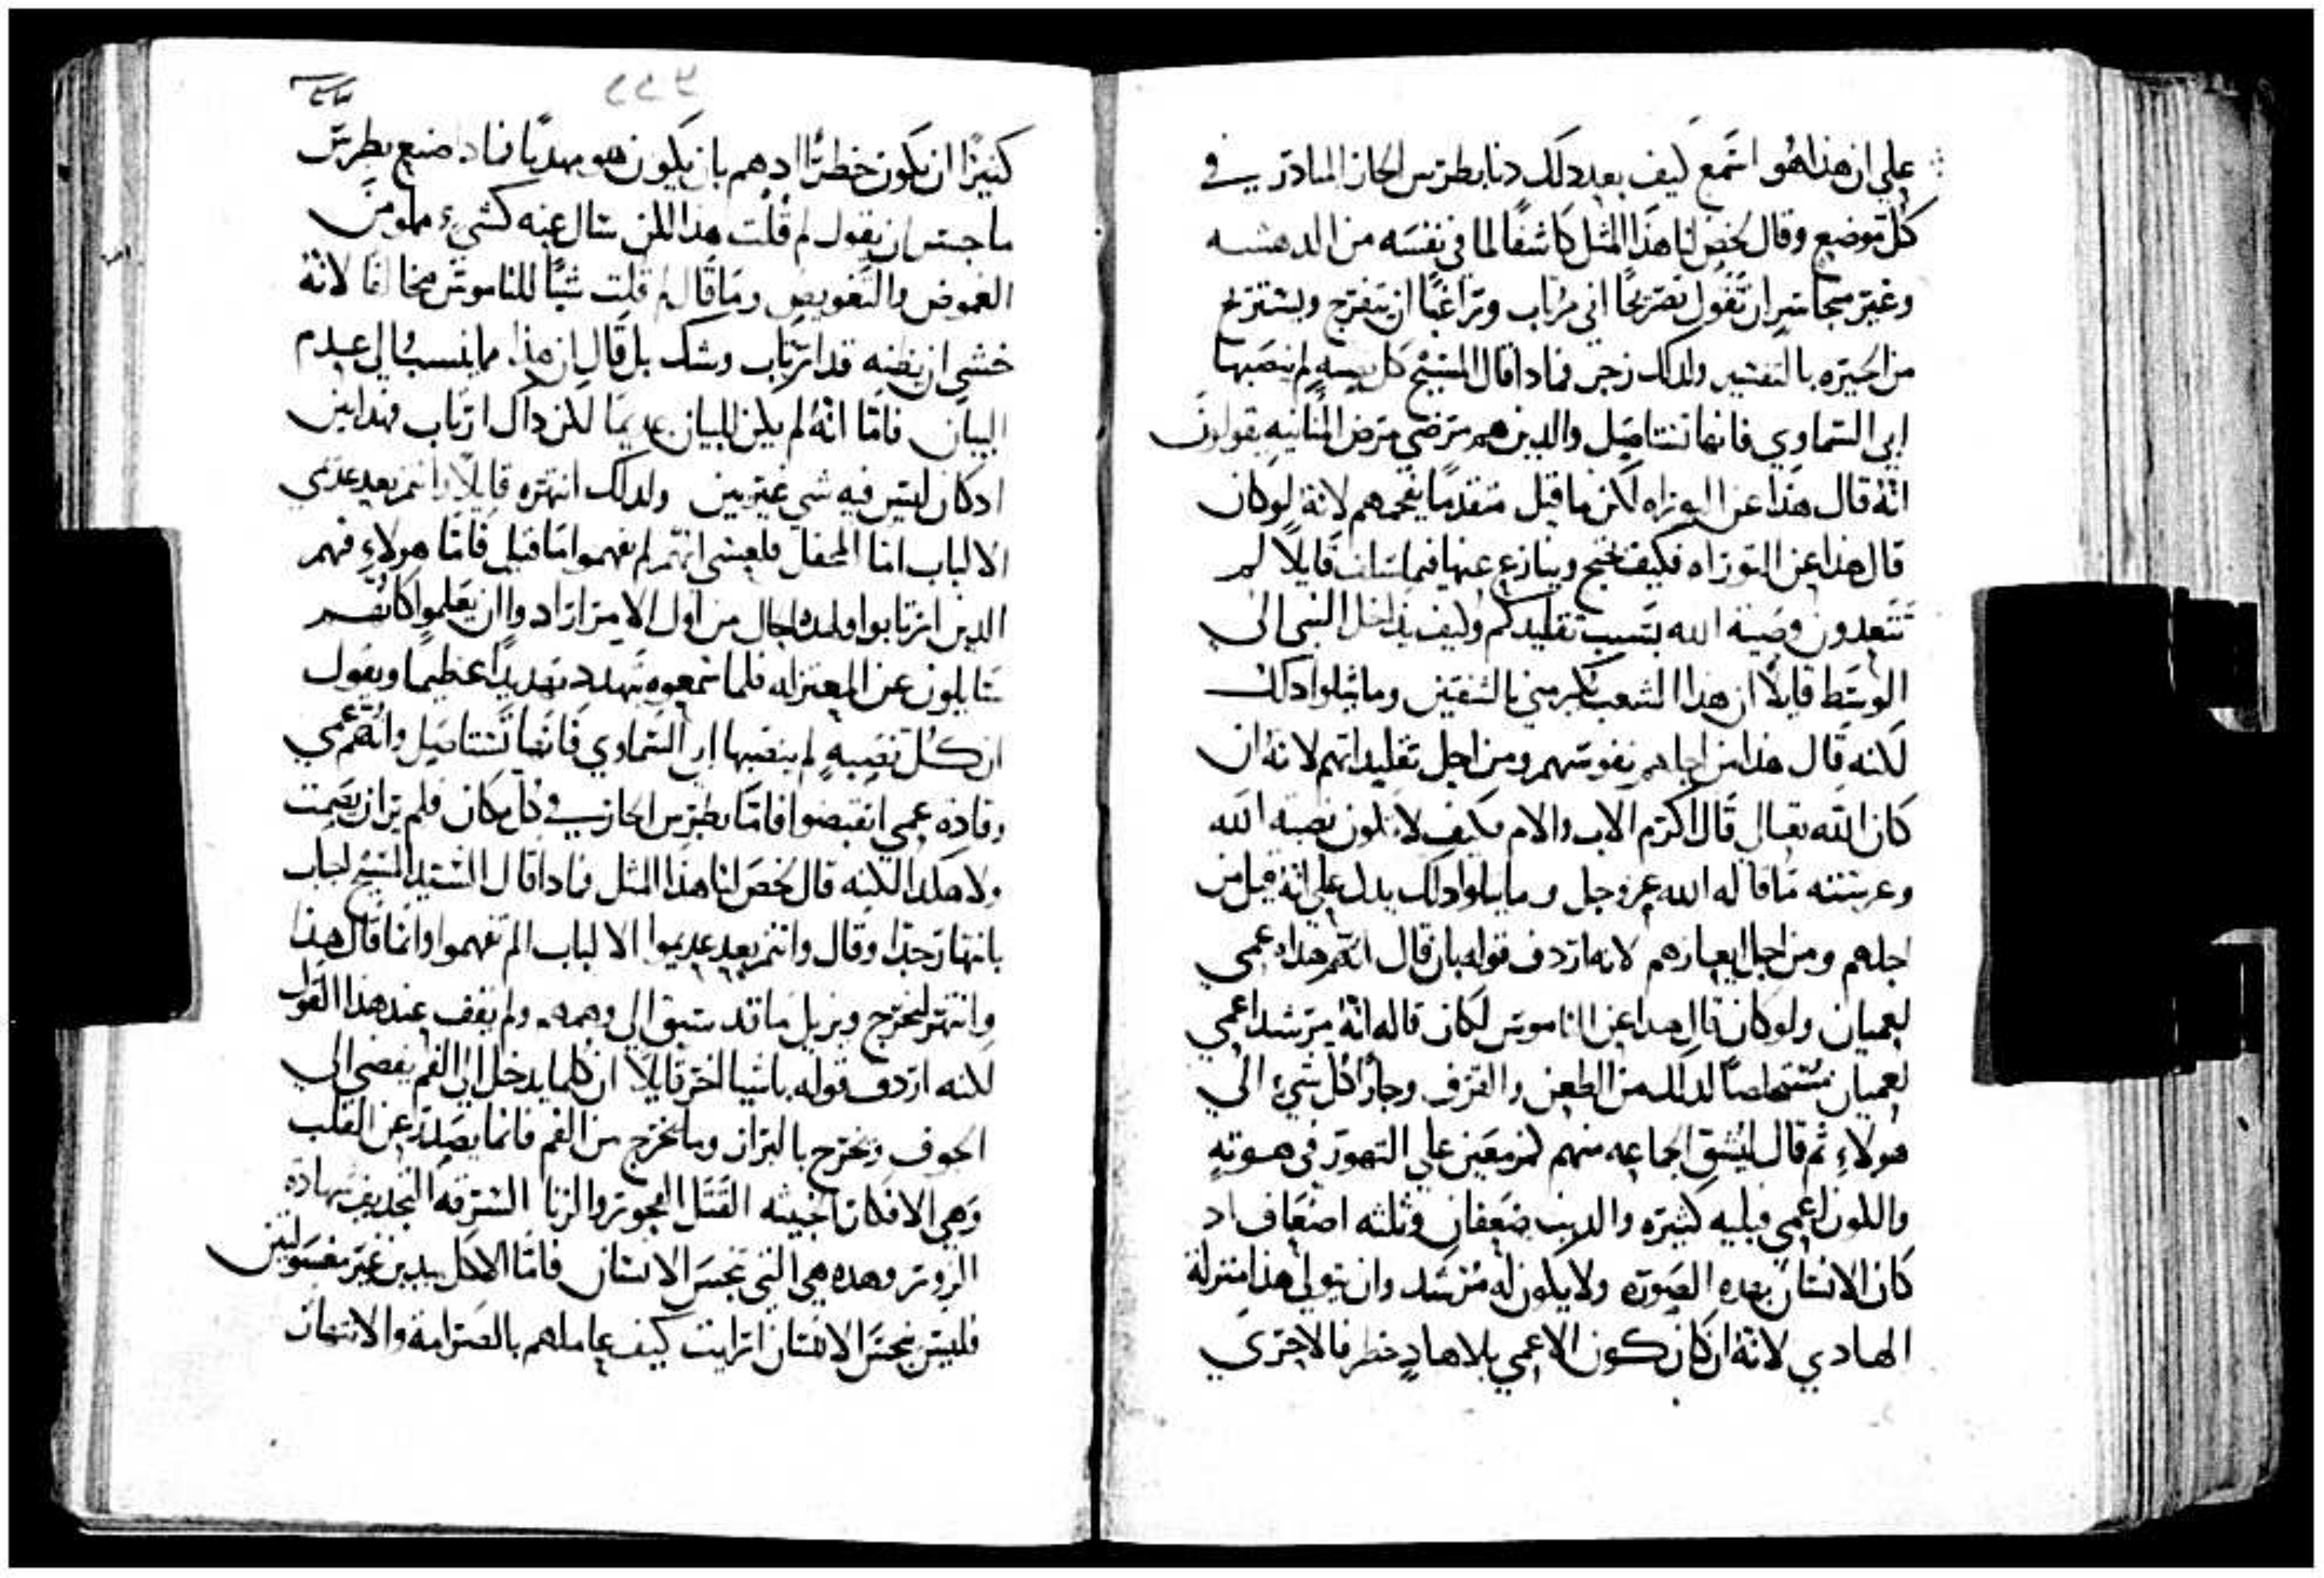 علي ان هذا هو اسمع كيف بعد دلك دنا بطرس الحار المبادر في
كل موضع وقال لخص لنا هذا المثل كاشفا لما في نفسه من الدهشه
وغير متجاسر ان يقول تصريحا اني مرتاب وراغبا ان يتفرج ويستريح
من الحيره بالتفسير ولدلك زجر فمادا قال المسيح كل نصبه لم ينصبها
ابي السماوي فانها تستاصل والدين هم مرضي مرض المنانيه يقولون
انه قال هذا عن التوراه لكن ما قيل متقدما يفحمهم لانه لو كان
قال هذا عن التوراه فكيف يحتج وينازع عنها فيما سلف قايلا لم
تتعدون وصية الله بسبب تقليدكم وكيف يداخل النبي الي
الوسط قايلا ان هدا الشعب يكرمني بالشفتين وما يتلوا دلك
لكنه قال هذا من اجلهم نفوسهم ومن اجل تقليداتهم لانه ان
كان الله تعالي قال اكرم الاب والام فكيف لا تكون نصبة الله
وغريسته ما قاله الله عز وجل وما يتلوا دلك يدل علي انه قيل من
اجلهم ومن اجل ابعادهم لانه اردف قوله بان قال انهم هداه عمي
لعميان ولو كان قال هدا عن الناموس لكان قاله انه مرشد اعمي
لعميان مستخلصا لدلك من الطعن والقرف وجارا كل شي الي
هولاء ثم قال ليشق الجماعه منهم لمزمعين علي التهور في هوته
واللون اعمي فبليه كثيره والديب ضعفان وثلثه اضعاف اد
كان الانسان بهده الصوره ولا يكون له مرشد وان يتولي هذا منزلة
الهادي لانه ان كان كون الاعمي بلا هاد خطر فالاحري
٢٢٤
كثيرا ان يكون خطرا ادهم بان يكون هو مهديا فماد اصنع بطرس
ما جسر ان يقول لم قلت هذا لكن سال عنه كشيء مملو من
الغموض والتعويص وما قال لم قلت شيا للناموس مخالفا لانه
خشي ان يظنه قد ارتاب وشك بل قال ان هذا مما ينسب الي عدم
البيان فاما انه لم يكن للبيان عديما لكن داك ارتاب فهدا بين
اد كان ليس فيه شي غير بين ولدلك انتهره قايلا وانتم بعد عدمي
الالباب اما المحفل فلعسي انهم لم يفهموا ما قيل فاما هولاء فهم
الدين ارتابوا ولهده الحال من اول الامر ارادوا ان يعلموا كانهم
سايلون عن المعتزله فلما سمعوه يهدد تهديدا عظيما ويقول
ان كل نصبه لم ينصبها ابي السماوي فانها تستاصل وانهم عمي
وقاده عمي انقبضوا فاما بطرس الحار في كل مكان فلم ير ان يصمت
ولا هكدا لكنه قال لخص لنا هذا المثل فمادا قال السيد المسيح اجاب
بانتهار جدا وقال وانتم بعد عديموا الالباب الم تفهموا وانما قال هذا
وانتهر ليخرج ويزيل ما قد سبق الي وهمه ولم يقف عند هذا القول
لكنه اردف قوله باشيا اخر قايلا ان كلما يدخل الي الفم يفضي الي
الجوف ويخرج بالبراز وما يخرج من الفم فانما يصدر عن القلب
وهي الافكار الخبيثه القتل الفجور والزنا السرقه التجديف شهادة
الزور وهده هي التي تنجس الانسان فاما الاكل بيدين غير مغسولتين
فليس ينجس الانسان ارايت كيف عاملهم بالصرامة والانتهار